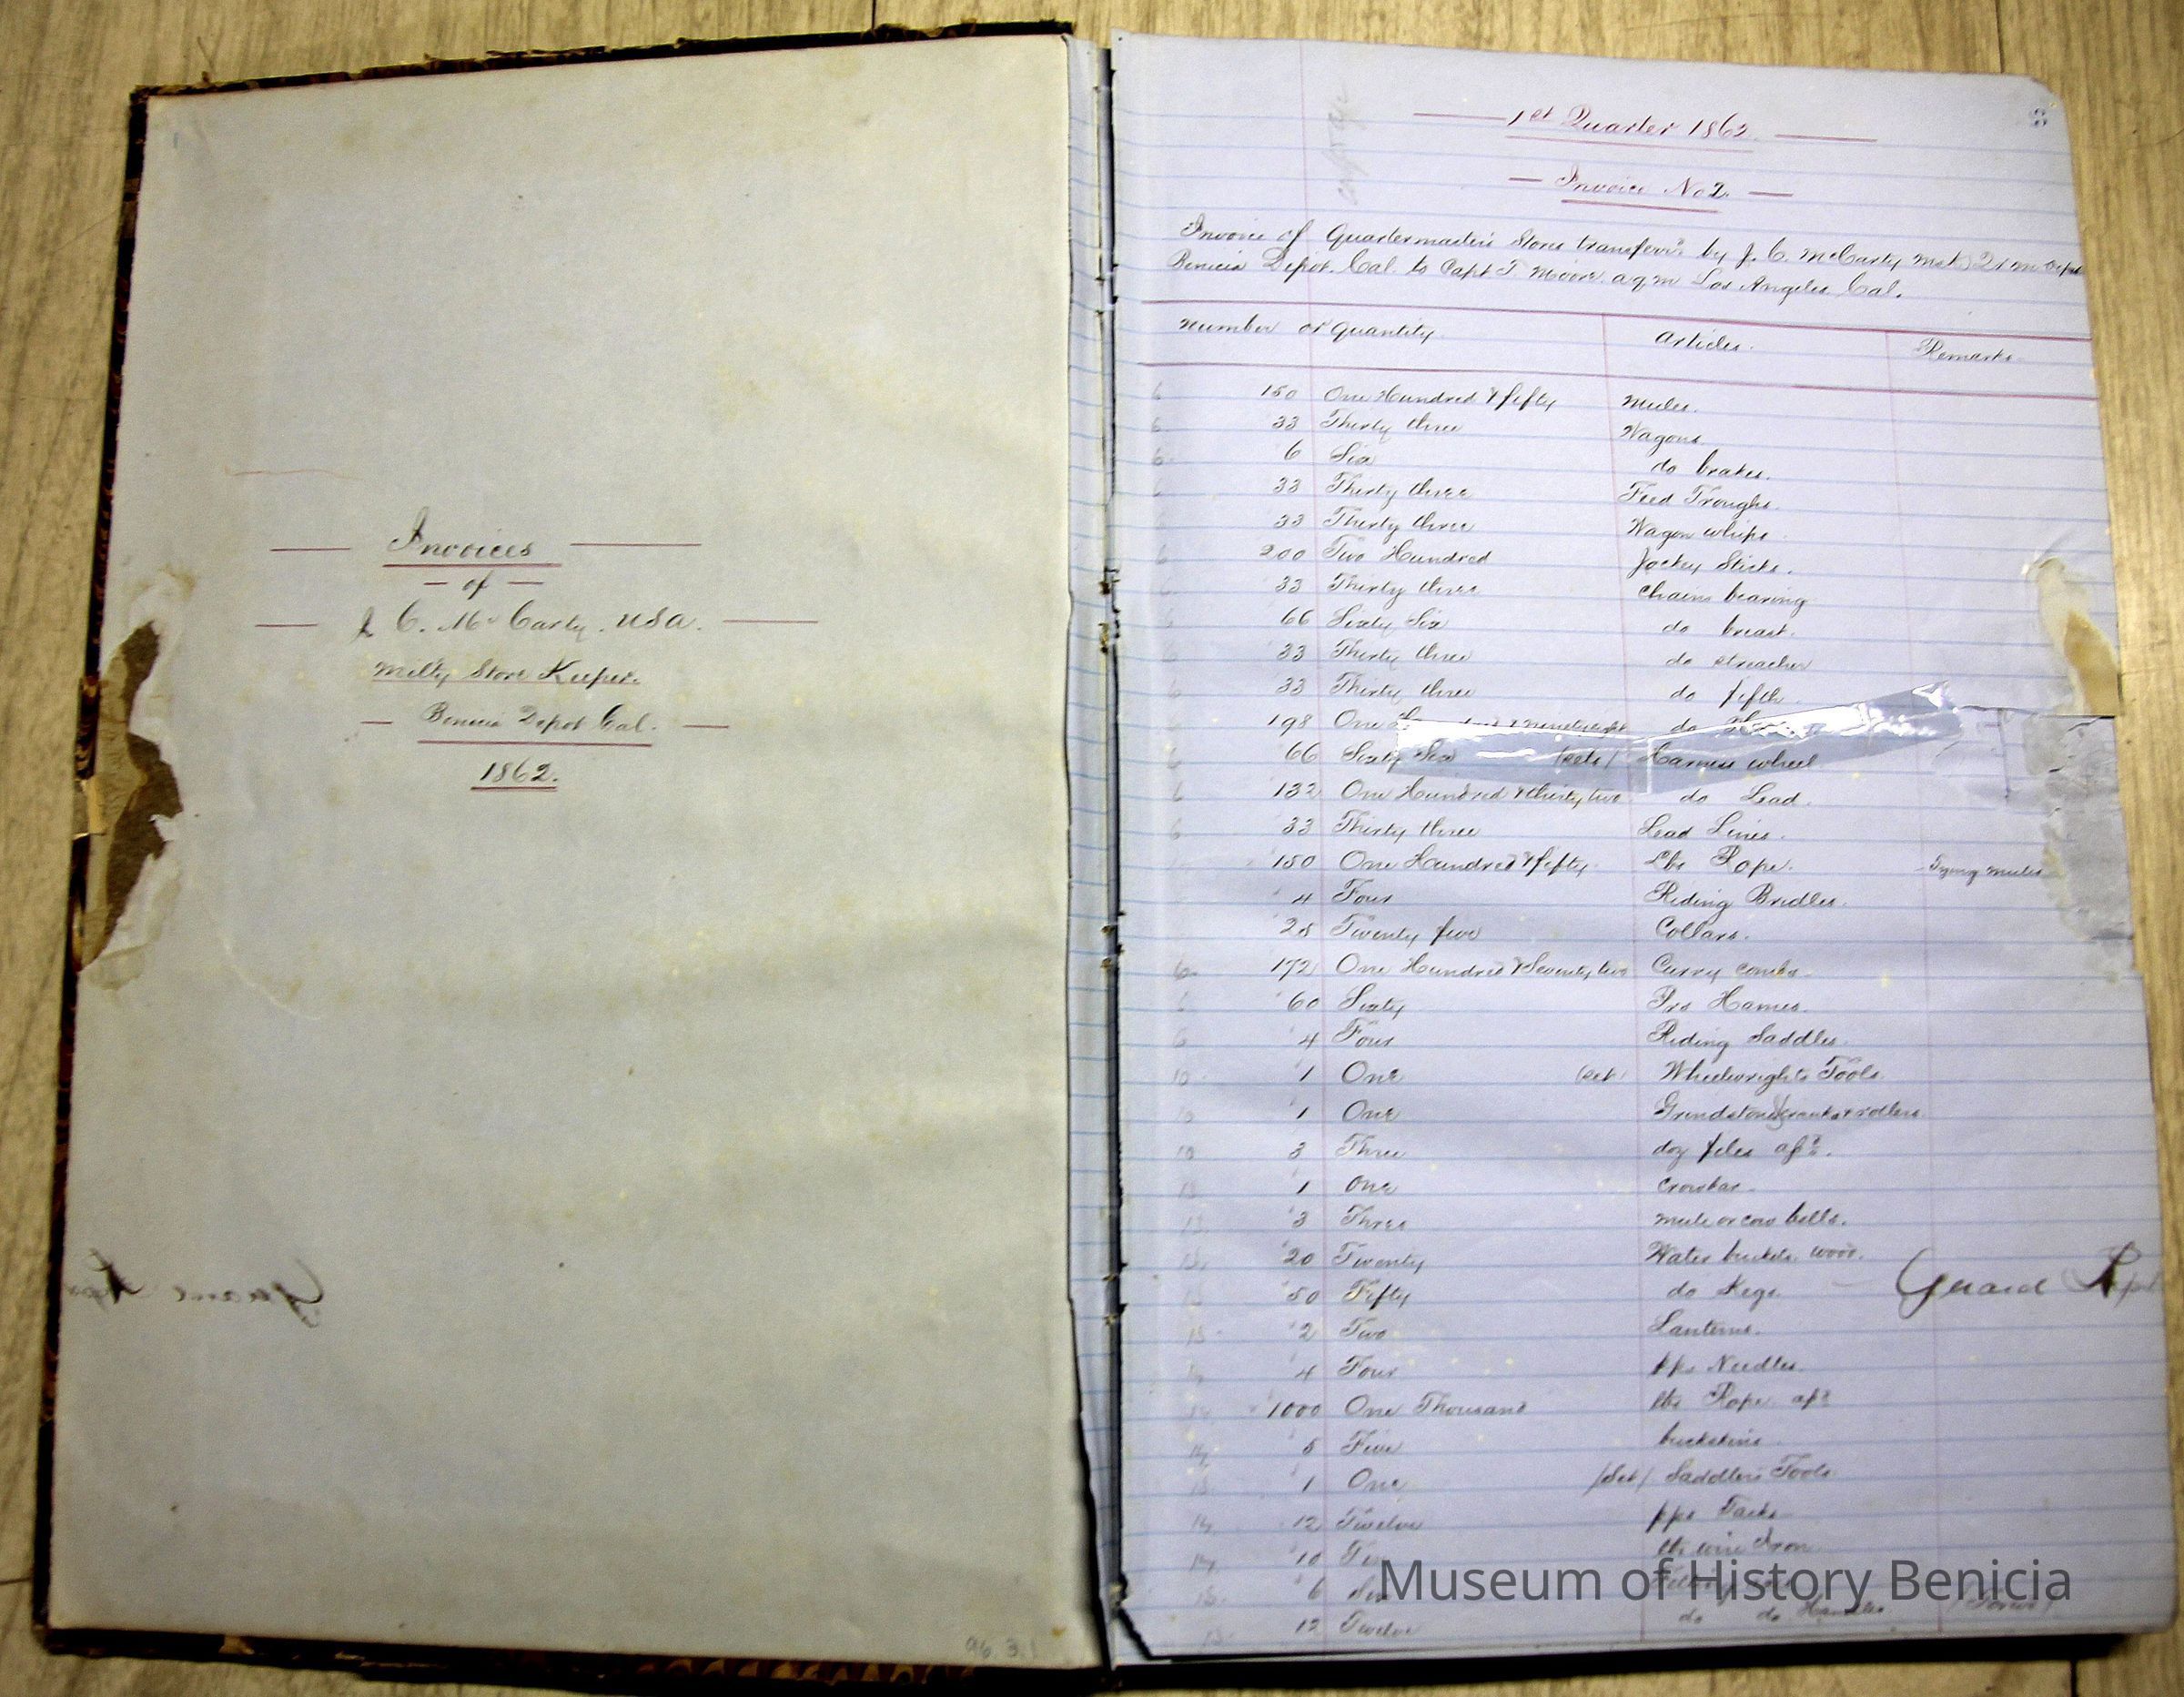 Invoices
of
J C. Mc Carty. USA.
Milty Store Keeper.
Benicia Depot Cal.
1862.
96.3.1
1st Quarter 1862
Invoice No 2.
Invoice of Quartermaster's Stores transferrd by J. C. McCarty
Benicia Depot. Cal. to Capt T. Moore. a.q.m Los Angeles Cal.
Number or quantity. Articles. Remarks.
6 150 One Hundred & fifty Mules.
6 33 Thirty three Wagons
6 6 Six do brakes.
33 Thirty three Feed Troughs.
33 Thirty three Wagon whips
6 200 Two Hundred Jockey Sticks.
33 Thirty three Chains bearing
66 Sixty Six do breast.
33 Thirty three do streacher
33 Thirty three do fifth.
198 One & ninetyeight do
66 Sixty Six (sets) Harness wheel
6 132 One Hundred & thirty two do Lead.
6 33 Thirty three Lead Lines.
150 One Hundred & fifty Lbs Rope. Tying mules
4 Four Riding Bridles.
25 Twenty five Collars.
6 172 One Hundred & Seventy two Curry combs
60 Sixty Prs Hames.
6 4 Four Riding Saddles.
10 1 One (set) Wheelwrights Tools.
10 1 One Grindstone cranks & rollers.
10 3 Three doz files
1 One Crowbar.
3 Three mule or cow bells.
20 Twenty Water buckets. wood.
50 Fifty do Kegs. Guard
2 Two Lanterns.
4 Four pps Needles.
1000 One Thousand lbs Rope
5 Five buckskins
1 One (Set) Saddlers Tools
12 Twelve pps Tacks
10 lbs wire Iron
6 Six
12 Twelve do do Handles
Museum of History Benicia